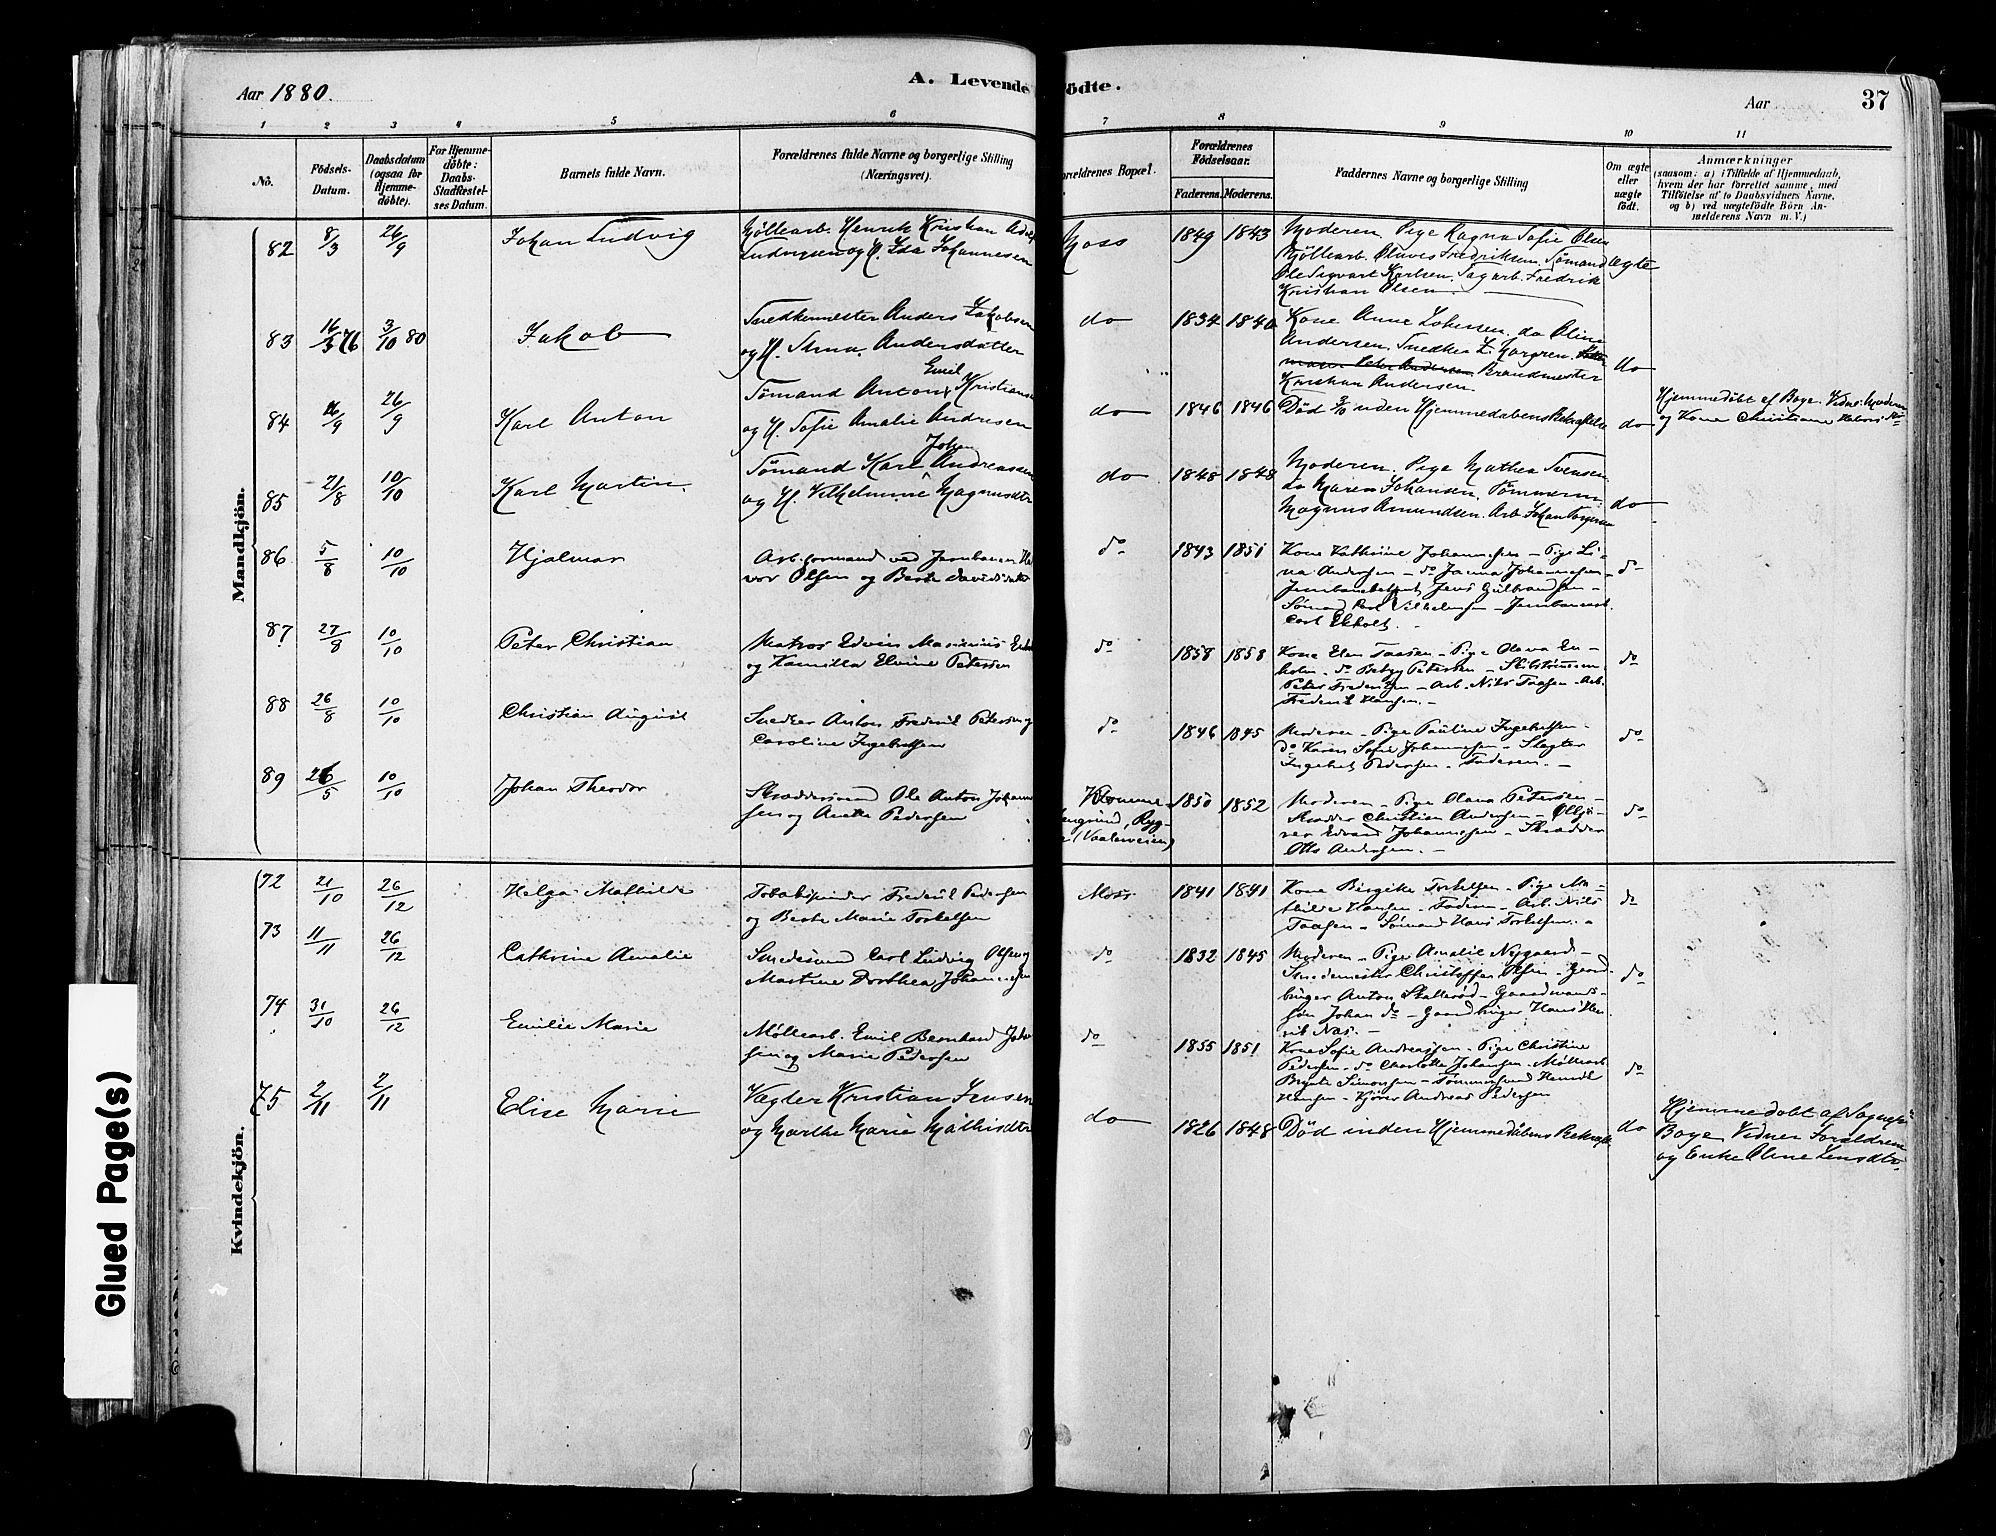 Aar 1880.
A. Levende
födte.
Aar
37
1 2 3 4 5 6
7 8 9 10 11
No.
Födsels-
Datum.
Daabsdatum
(ogsaa for
Hjemme-
döbte).
For Hjemme-
döbte:
Daabs-
Stadfæstel-
ses Datum.
Barnets fulde Navn.
Forældrenes fulde Navne og borgerlige Stilling
(Næringsvei).
Forældrenes Bopæl.
Forældrenes
Födselsaar.
Faderens. Moderens.
Faddernes Navne og borgerlige Stilling
Om ægte
eller
uægte
födt.
Anmærkninger
(saasom: a) i Tilfælde af Hjemmedaab,
hvem der har forrettet samme, med
Tilföielse af to Daabsvidners Navne,
og b) ved uægtefödte Börn An-
melderens Navn m. V.)
Mandkjön.
82 8/3 26/9 Johan Ludvig
Möllearb. Henrik Kristian Adolf
Ludvigsen og H. Ida Johannesen
Moss 1849 1843
Moderen. Pige Ragna Sofie Olsen
Möllearb. Olaves Fredriksen. Sömand
Ole Sigvart Karlsen. Sagarb. Fredrik
Kristian Olsen.
ægte
83 16/3 76 3/10 80 Jakob
Snedkermester Anders Jakobsen
og H. Andersdatter
do 1834 1840
Kone Anne do Oline
Andersen. Snedker
Brandmester
Kristian Andersen
do
84 26/9 Karl Anton
Sömand Anton Emil Kristians
og H. Sofie Amalie Andresen
do 1846 1846
Död inden Hjemmedaabens Bekræftelse
do
Hjemmedöbt af Boye. Vidner: Moderen
og Kone Christiane
85 21/8 10/10 Karl Martin.
Sömand Karl Johan Andreassen
og H. Vilhelmine Magnusdtr
do 1848 1848
Moderen. Pige Mathea Svensen
do Maren Johansen. Tömmerm
Magnus Amundsen. Arb. Johan
do
86 5/8 10/10 Hjalmar
Arb.formand ved Jernbanen
vor Olsen og Berte Davidsdatter
do 1843 1851
Kone Kathrine Johannesen – Pige Li-
na Andersen – do Johannesen –
Jernbanebetjent Jens Gulbrandsen –
Sömand Karl Vilhelmsen – Jernbanearb.
Carl Ekholt. –
do
87 27/8 10/10 Peter Christian
Matros Edvin Marinius
og Kamilla Elvine Petersen
do 1858 1858
Kone Elen Taasen – Pige Olava En-
holm – do Betzy Petersen – Skibstömmerm.
Peter Fredriksen – Arb. Nils Taasen – Arb.
Frederik Hansen. –
do
88 26/8 10/10 Christian August
Snedker Anton Frederik Petersen og
Caroline Ingebretsen
do 1846 1845
Moderen – Pige Pauline Ingebretsen –
do Karen Sofie Johannesen – Slagter
Ingebret Pedersen – Faderen. –
do
89 26/5 10/10 Johan Theodor
Skræddersvend Ole Anton Johanne
sen og Anette Pedersen
engrund, Ryg-
ge (Vaalerveien) 1850 1852
Moderen – Pige Olava Petersen –
Skrædder Christian Andersen –
Edvard Johannesen – Skrædder
Otto Andersen. –
do
Kvindekjön.
72 21/10 26/12 Helga Mathilde
Tobakspinder Frederik Pedersen
og Berte Marie Torkelsen
Moss 1841 1841
Kone Birgitte Torkelsen – Pige Ma-
thilde Hansen – Faderen – Arb. Nils
Taasen – Sömand Hans Torkelsen. –
do
73 11/11 26/12 Cathrine Amalie
Smedesvend Carl Ludvig Olsen og
Martine Dorthea Johannesen
do 1832 1845
Moderen – Pige Amalie Nygaard –
Smedemester Christoffer Olsen – Gaard-
bruger Anton Skallerød – Gaardmands-
søn Johan do – Gaardbruger Hans Hen-
rik Næs. –
do
74 31/10 26/12 Emilie Marie
Möllearb. Emil Bernhard
sen og Marie Pedersen
do 1855 1851
Kone Sofie Andreassen – Pige Christine
Pedersen – do Charlotte Johansen – Möllearb.
Simonsen – Tömmersvend Henrik
Hansen – Andreas Pedersen
do
75 2/11 2/11 Elise Marie
Vægter Kristian Jensen
og Marthe Marie Mathisdtr
do 1826 1848
Död inden Hjemmedåbens Bekræft
do
Hjemmedöbt af
Boye. Vidner Forældrene
og Enke Oline Jensdtr
Glued Page(s)